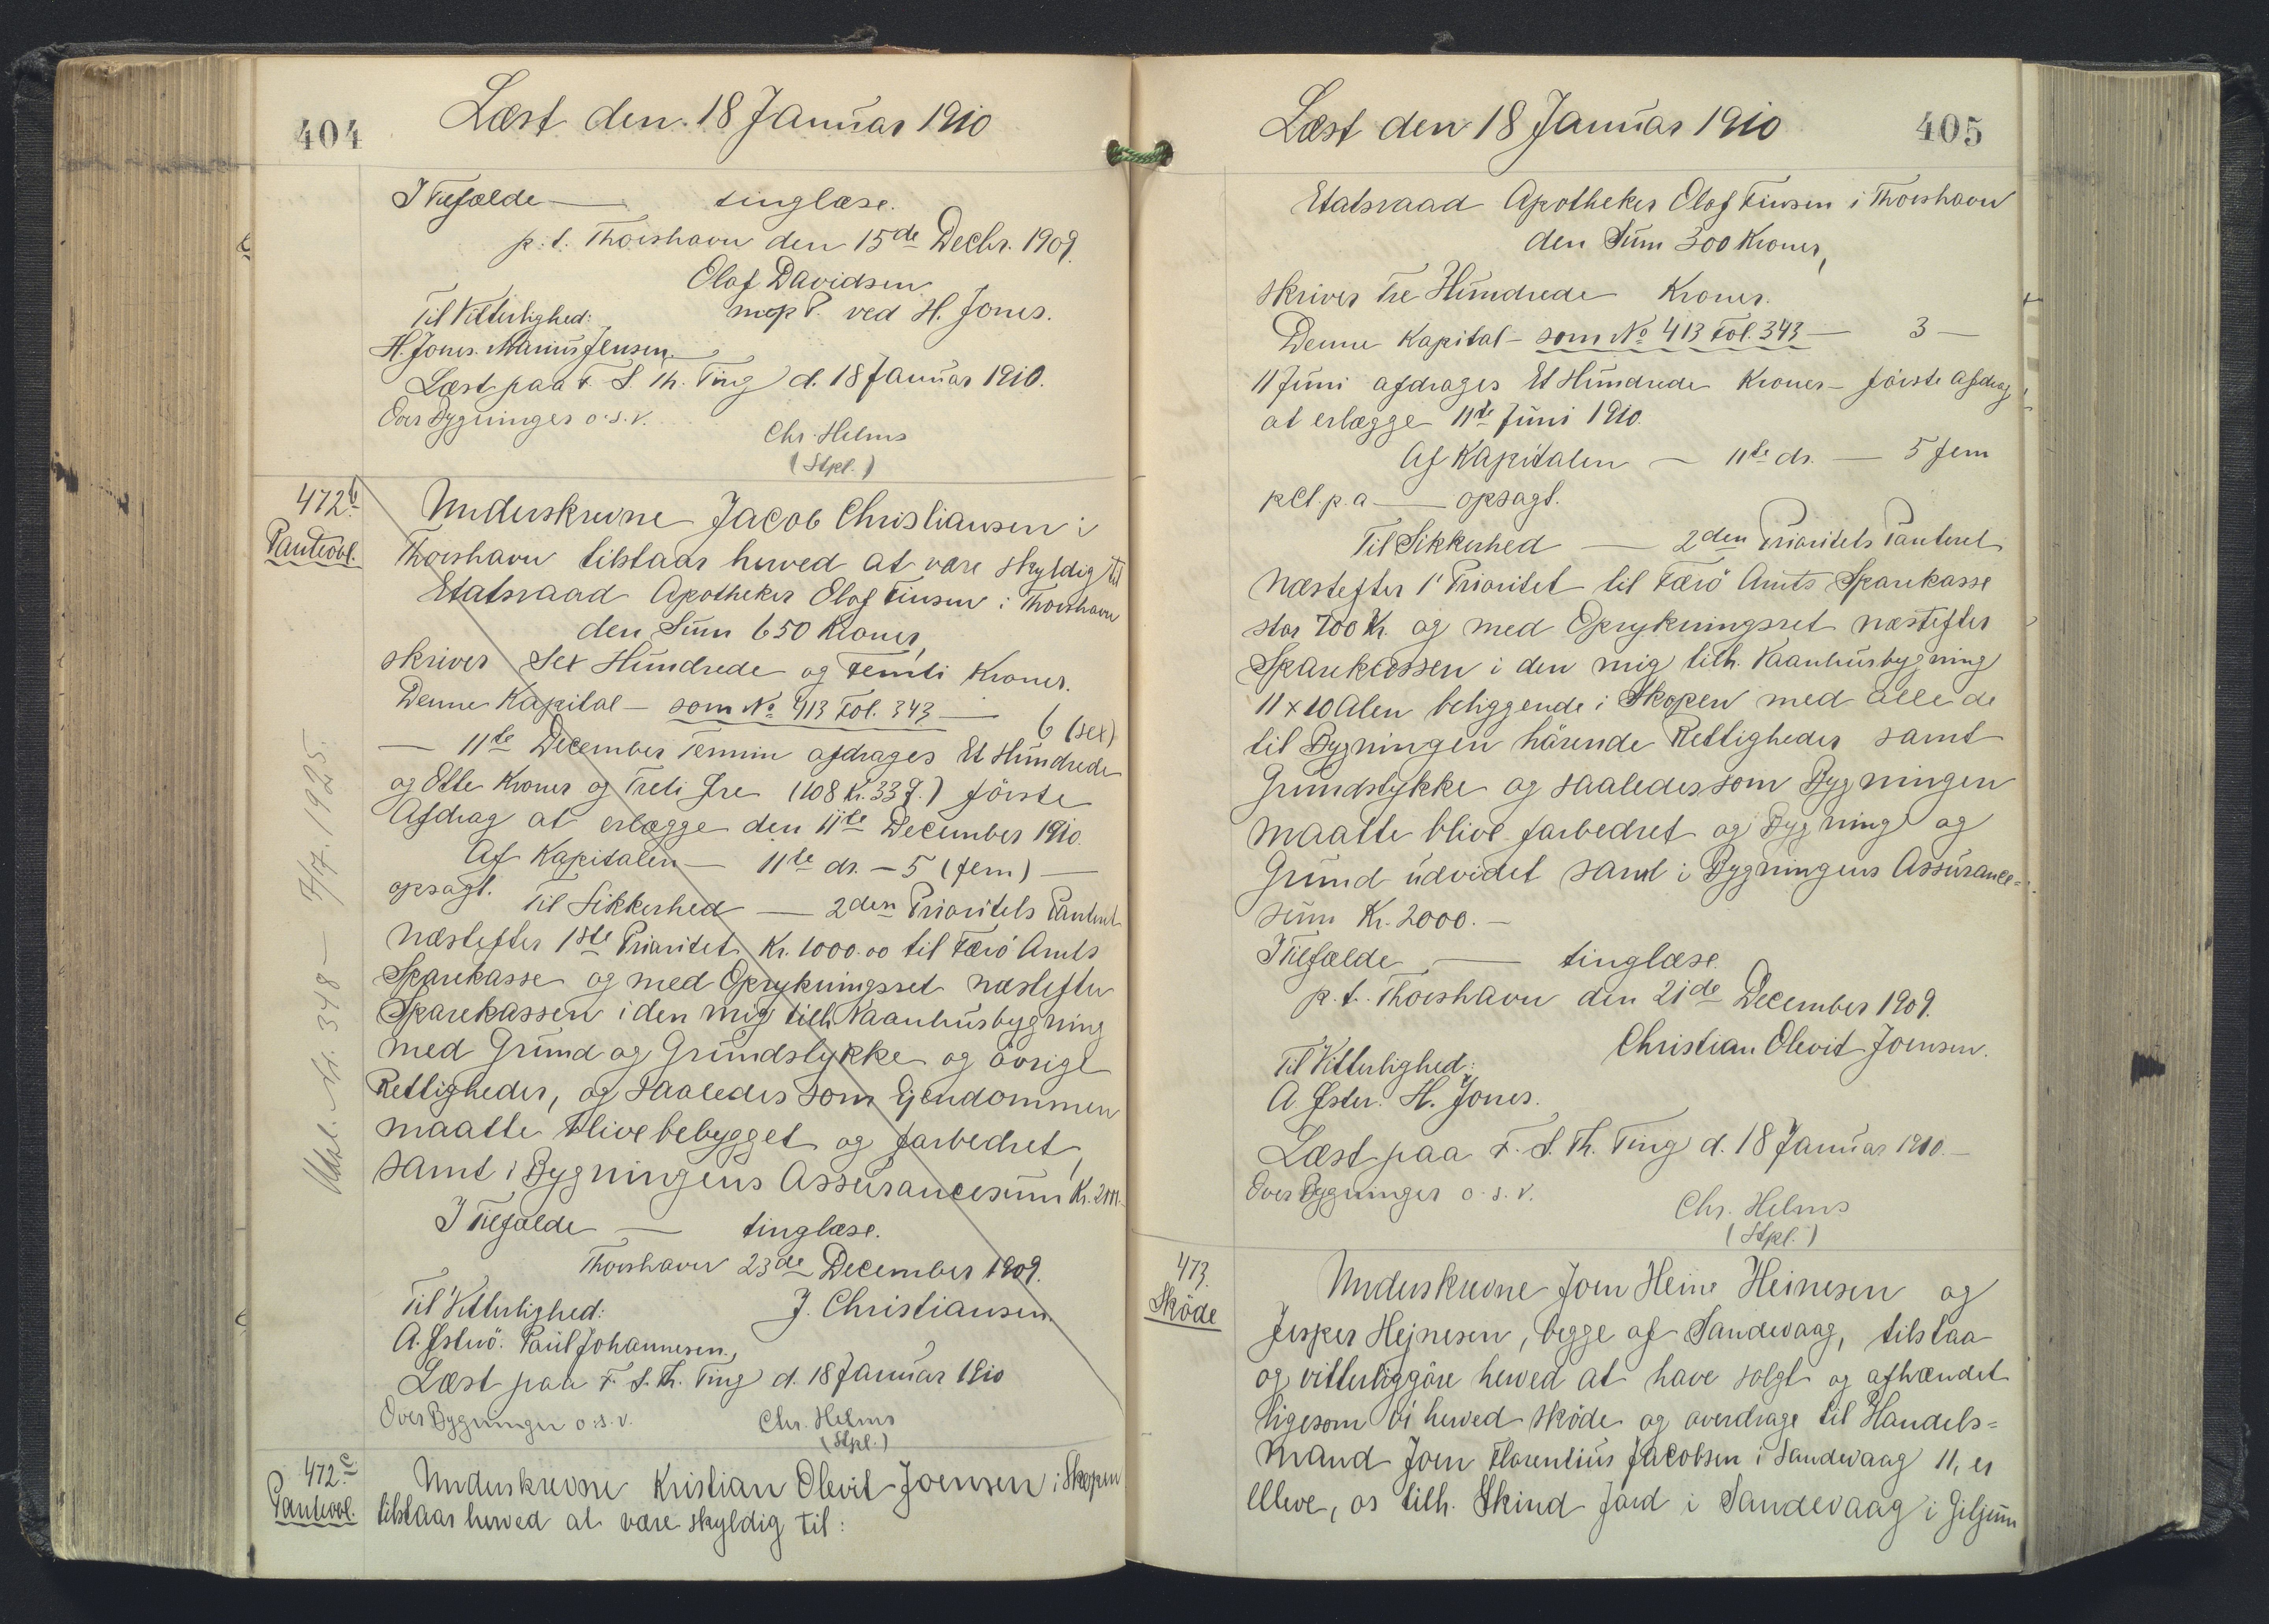 404
Læst den 18 Januar 1910
I Tilfælde — tinglæse.
p. t. Thorshavn den 15de Decbr. 1909.
Olaf Davidsen
Til Vitterlighed: m.p.P. ved H. Jones.
H. Jones. Marius Jensen.
Læst paa F. S. Th. Ting d. 18 Januar 1910.
Over Bygninger o. s. v.
Chr. Helms
(Stpl.)
472b.
Panteobl.
Underskrevne Jacob Christiansen i
Thorshavn tilstaar herved at være skyldig til
Etatsraad Apotheker Olaf Finsen i Thorshavn
den Sum 650 Kroner,
skriver Sex Hundrede og Femti Kroner.
Denne Kapital — som No 413 Fol. 343 — 6 (sex)
— 11te December Termin afdrages Et Hundrede
og Otte Kroner og Treti Øre (108 Kr. 33 Ø.) förste
Afdrag at erlægge den 11te December 1910.
Af Kapitalen — 11te ds. — 5 (fem) —
opsagt. Til Sikkerhed — 2den Prioritets Panteret
næstefter 1ste Prioritet Kr. 1000.00 til Færö Amts
Sparekasse og med Oprykningsret næstefter
Sparekassen i den mig tilh. Vaanhusbygning
med Grund og Grundstykke og övrige
Rettigheder, og saaledes som Ejendommen
maatte blive bebygget og forbedret,
samt i Bygningens Assurancesum Kr. 2000.
I Tilfælde — tinglæse.
Thorshavn 23de December 1909.
Til Vitterlighed: J. Christiansen.
A. Østerö. Paul Johannesen.
Læst paa F. S. Th. Ting d. 18 Januar 1910
Over Bygninger o. s. v. Chr. Helms
(Stpl.)
Udsl. Nr. 348 — 7/7. 1925.
472c.
Panteobl.
Underskrevne Kristian Olevit Joensen i Skopen
tilstaar herved at være skyldig til:
Læst den 18 Januar 1910
405
Etatsraad Apotheker Olaf Finsen i Thorshavn
den Sum 300 Kroner,
skriver Tre Hundrede Kroner.
Denne Kapital — som No 413 Fol. 343 — 3 —
11 Juni afdrages Et Hundrede Kroner — förste Afdrag
at erlægge 11te Juni 1910.
Af Kapitalen — 11te ds. — 5 fem
pCt. p. a — opsagt.
Til Sikkerhed — 2den Prioritets Panteret
næstefter 1' Prioritet til Færö Amts Sparekasse
stor 700 Kr. og med Oprykningsret næstefter
Sparekassen i den mig tilh. Vaanhusbygning
11 x 10 Alen beliggende i Skopen med alle de
til Bygningen hörende Rettigheder samt
Grundstykke og saaledes som Bygningen
maatte blive forbedret og Bygning og
Grund udvidet samt i Bygningens Assurance=
sum Kr. 2000. —
I Tilfælde — tinglæse.
p. t. Thorshavn den 21de December 1909.
Christian Olevit Joensen.
Til Vitterlighed:
A. Øster. H. Jones.
Læst paa F. S. Th. Ting d. 18 Januar 1910. —
Over Bygninger o. s. v.
Chr. Helms
(Stpl.)
473.
Sköde
Underskrevne Joen Heine Heinesen og
Jesper Hejnesen, begge af Sandevaag, tilstaa
og vitterliggöre herved at have solgt og afhændet
ligesom vi herved sköde og overdrage til Handels=
mand Joen Florentius Jacobsen i Sandevaag 11, er
elleve, os tilh. Skind Jord i Sandevaag i Giljum